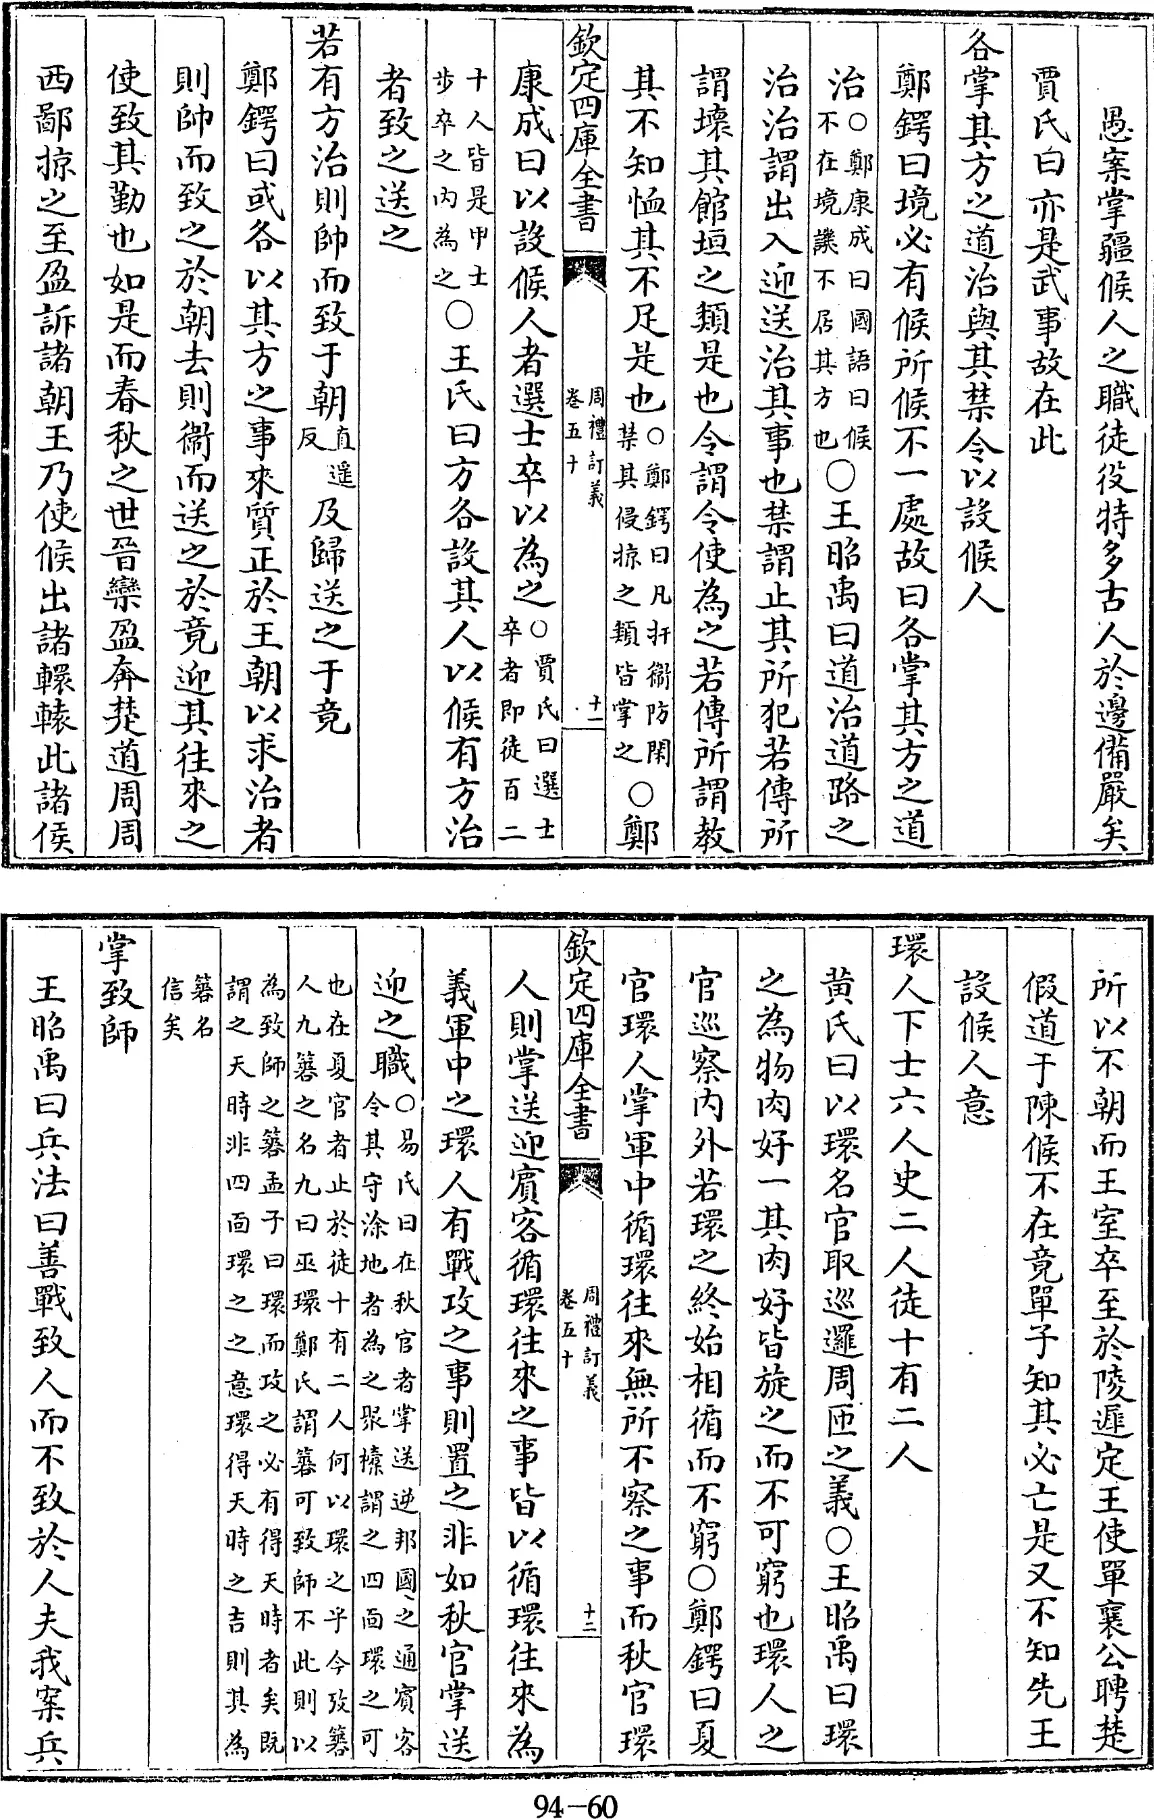 愚案掌疆候人之職徒役特多古人於邊備嚴矣
賈氏曰亦是武事故在此
各掌其方之道治與其禁令以設候人
鄭鍔曰境必有候所候不一處故曰各掌其方之道
治○鄭康成曰國語曰候不在境譏不居其方也○王昭禹曰道治道路之
治治謂出入迎送治其事也禁謂止其所犯若傳所
謂壞其館垣之類是也令謂令使為之若傳所謂教
其不知恤其不足是也○鄭鍔曰凡扞衞防閑禁其侵掠之類皆掌之○鄭
欽定四庫全書 周禮訂義卷五十 十一
康成曰以設候人者選士卒以為之○賈氏曰選士卒者即徒百二
十人皆是甲士步卒之內為之○王氏曰方各設其人以候有方治
者致之送之
若有方治則帥而致于朝直遥反及歸送之于竟
鄭鍔曰或各以其方之事來質正於王朝以求治者
則帥而致之於朝去則衞而送之於竟迎其往來之
使致其勤也如是而春秋之世晉欒盈奔楚道周周
西鄙掠之至盈訴諸朝王乃使候出諸轘轅此諸侯
所以不朝而王室卒至於陵遲定王使單襄公聘楚
假道于陳候不在竟單子知其必亡是又不知先王
設候人意
環人下士六人史二人徒十有二人
黄氏曰以環名官取巡邏周匝之義○王昭禹曰環
之為物肉好一其肉好皆旋之而不可窮也環人之
官巡察内外若環之終始相循而不窮○鄭鍔曰夏
官環人掌軍中循環往來無所不察之事而秋官環
欽定四庫全書 周禮訂義卷五十 十二
人則掌送迎賓客循環往來之事皆以循環往來為
義軍中之環人有戰攻之事則置之非如秋官掌送
迎之職○易氏曰在秋官者掌送逆邦國之通賓客令其守涂地者為之聚㯓謂之四面環之可
也在夏官者止於徒十有二人何以環之乎今攷簭人九簭之名九曰巫環鄭氏謂簭可致師不此則以
為致師之簭孟子曰環而攻之必有得天時者矣既謂之天時非四面環之之意環得天時之吉則其為
簭名信矣
掌致師
王昭禹曰兵法曰善戰致人而不致於人夫我案兵
94-60